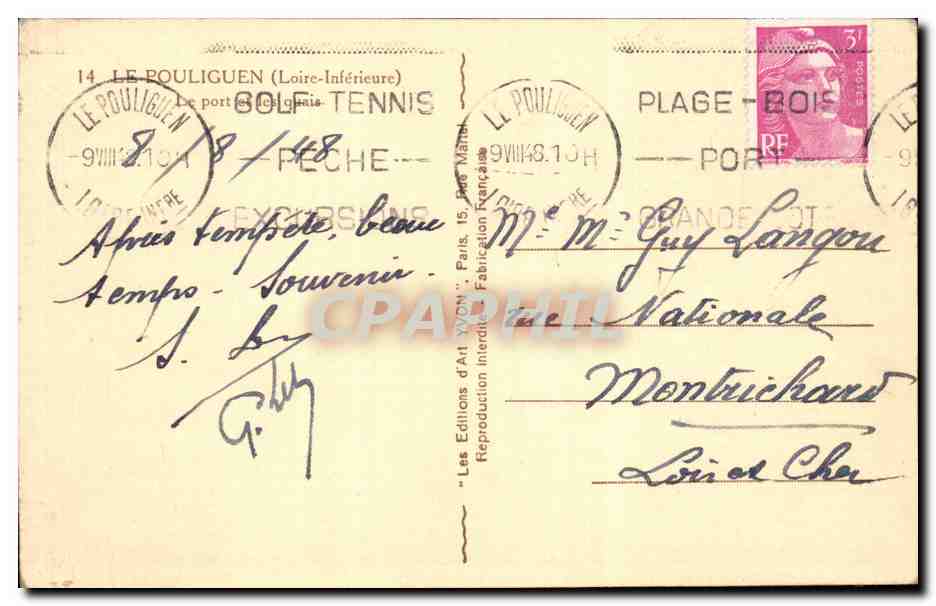 14 LE POULIGUEN (Loire-Inférieure)
Le port et les quais
LE POULIGUEN
-9VIII48.10H
LOIRE INFRE
GOLF-TENNIS
PÊCHE
EXCURSIONS
8/8/48
Après tempête, beau
temps - Souvenir -
"Les Editions d'Art YVON", Paris, 15, Rue Martel
Reproduction Interdite - Fabrication Française
LE POULIGUEN
9VIII48.10H
PLAGE-BOIS
PORT
GRANDE COTE
3F
POSTES
RF
Mr Me Guy Langou
rue Nationale
Montrichard
Loir et Cher
CPAPHIL